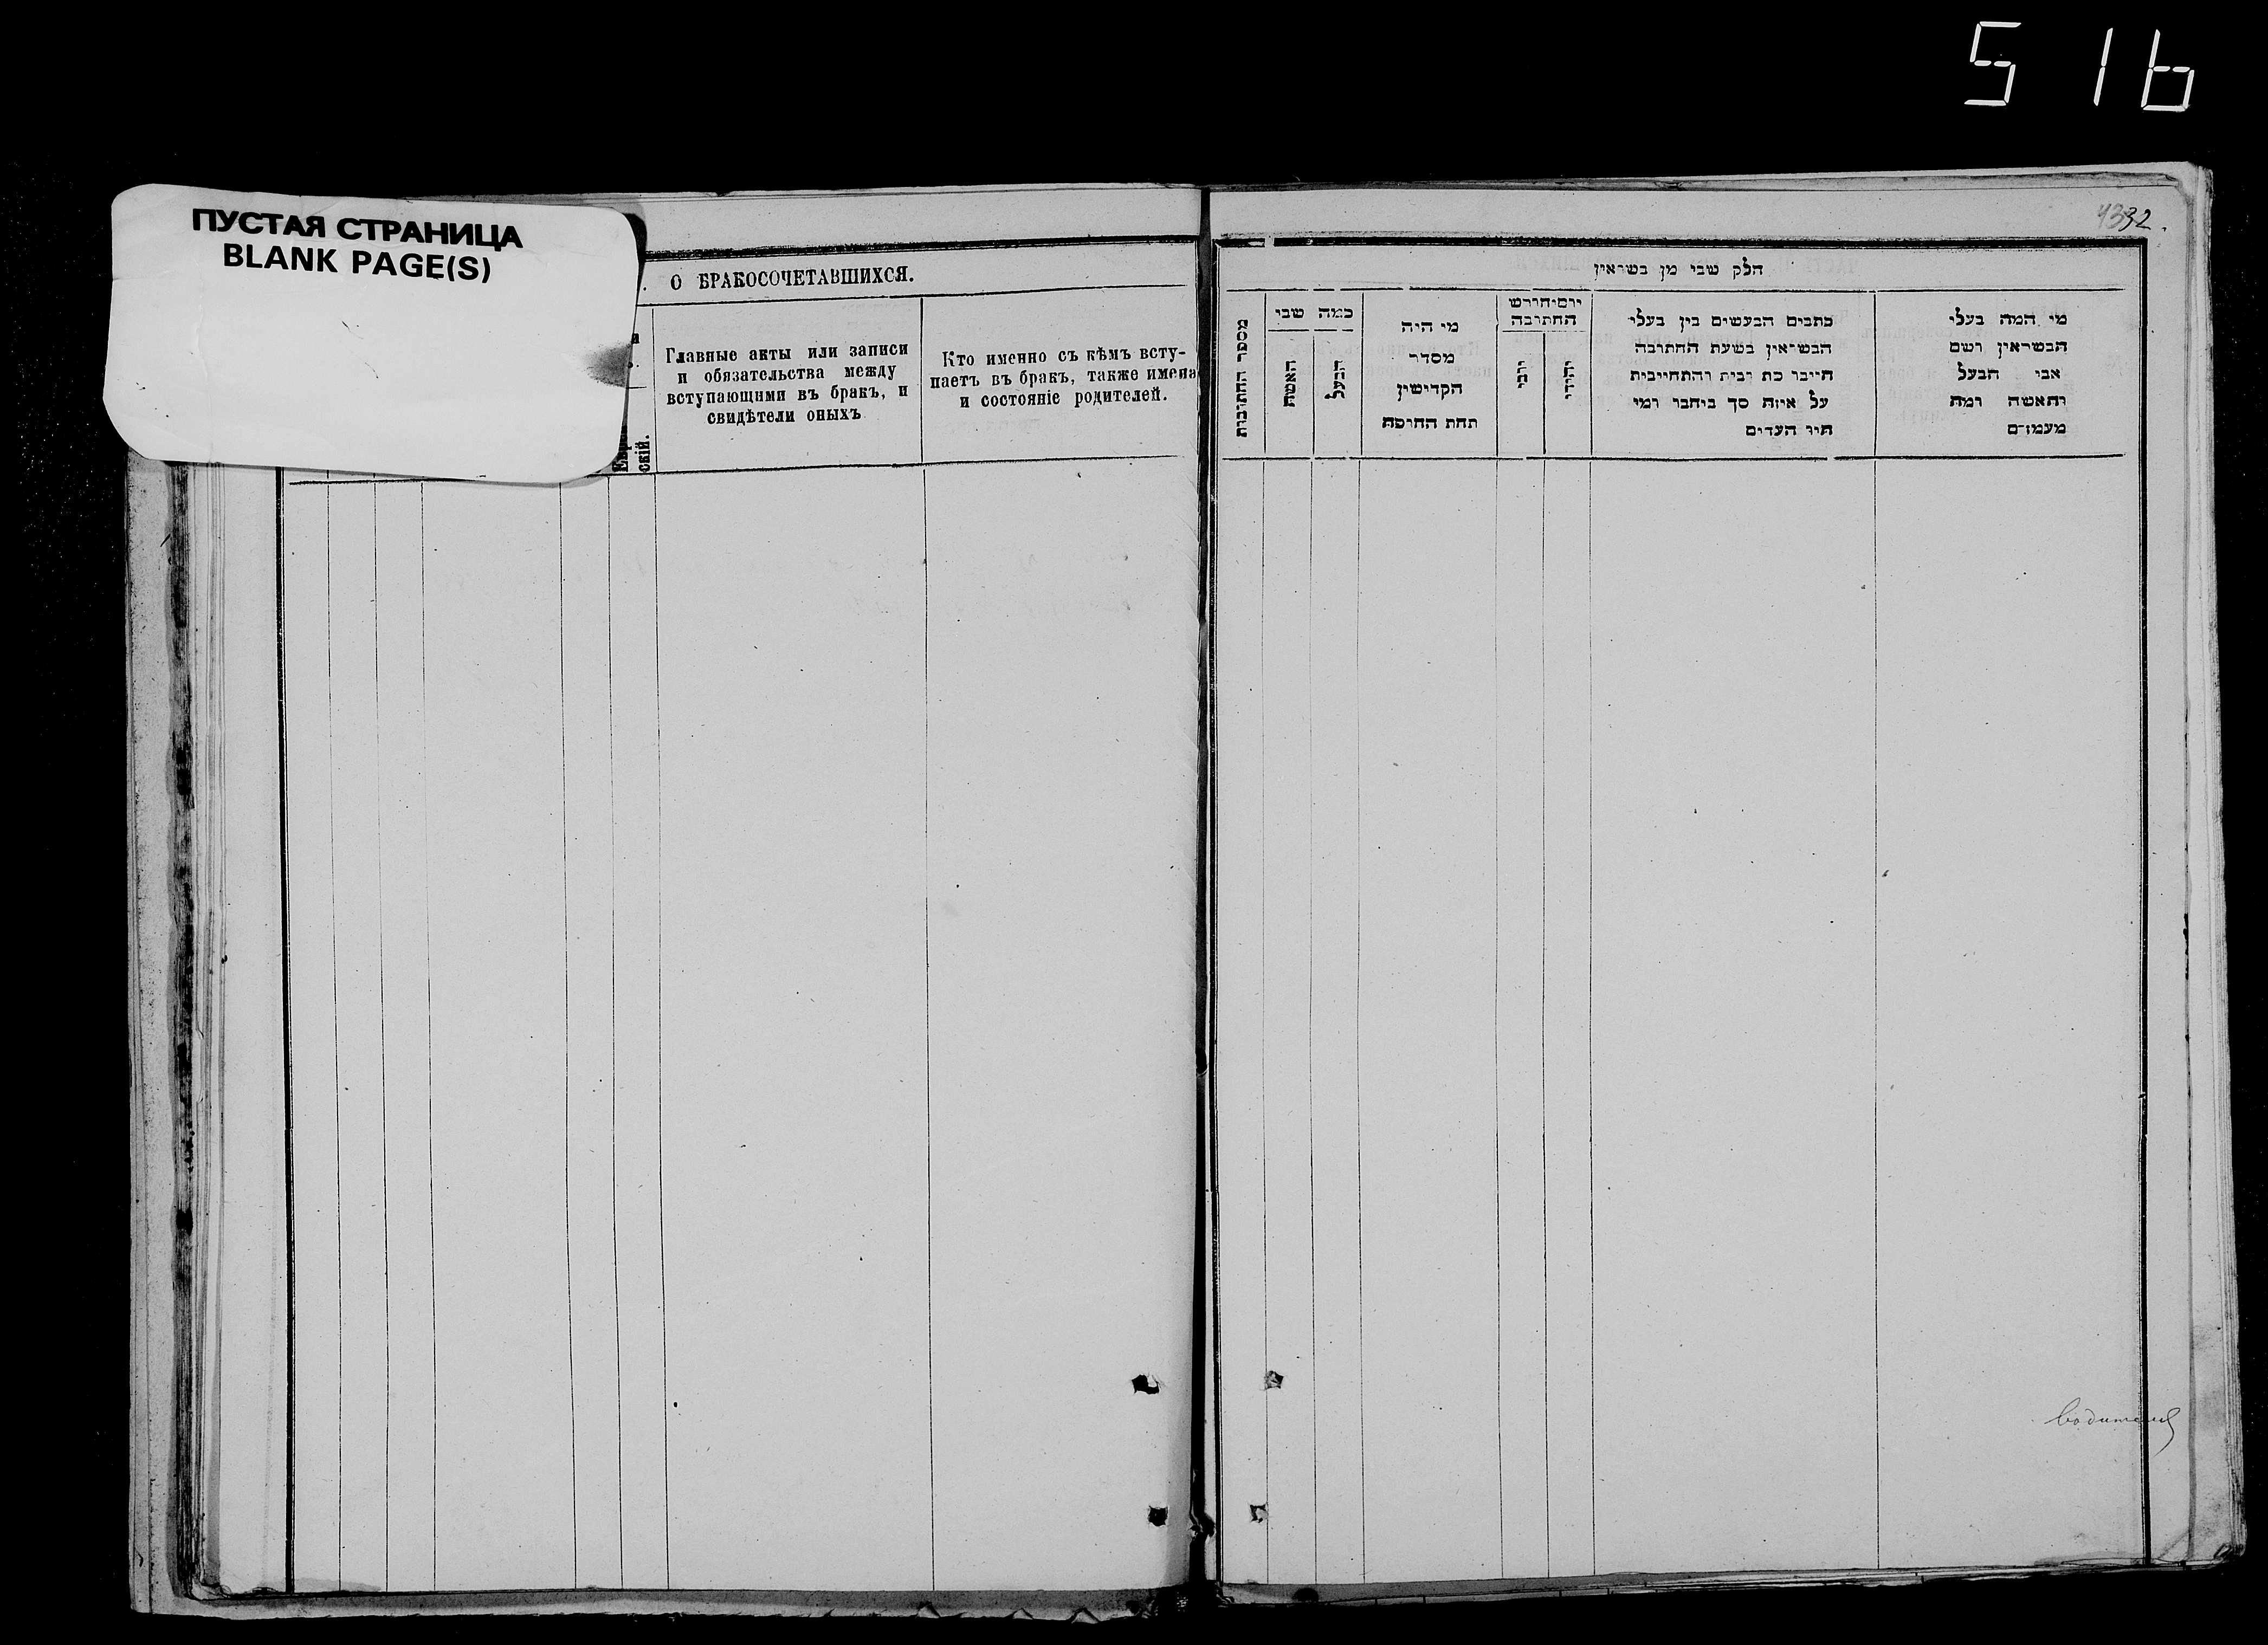 516
ПУСТАЯ СТРАНИЦА
BLANK PAGE(S)
О БРАКОСОЧЕТАВШИХСЯ.
скій.
Главные акты или записи
и обязательства между
вступающими въ бракъ, и
свидѣтели оныхъ
Кто именно съ кѣмъ всту-
паетъ въ бракъ, также имена
и состояніе родителей.
32.
חלק שבי מן בשואין
מספר החתובות
כמה שבי
האשה
הבעל
מי היה
מסדר
הקדישין
תחת החופה
החתובה
כתבים הבעשים בין בעלי
הבשואין בשעת החתובה
על איזה סך ביחבו ומי
היו העדים
מי המה בעלי
הבשואין ושם
אבי הבעל
והאשה ומה
מעמדם